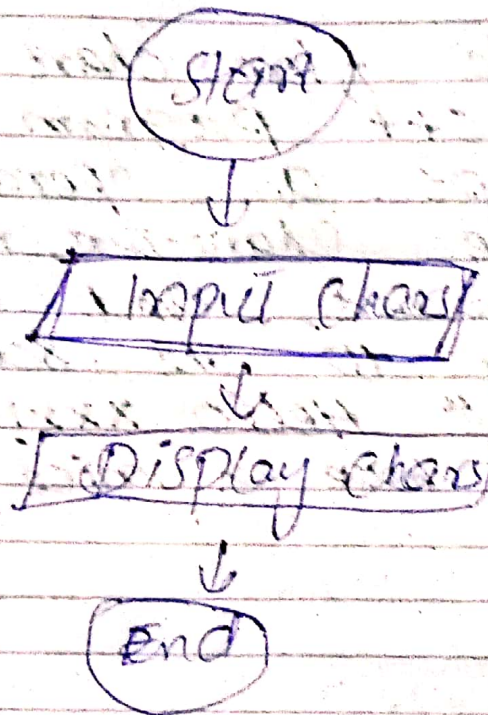 Start
Input Chars
Display Chars
End